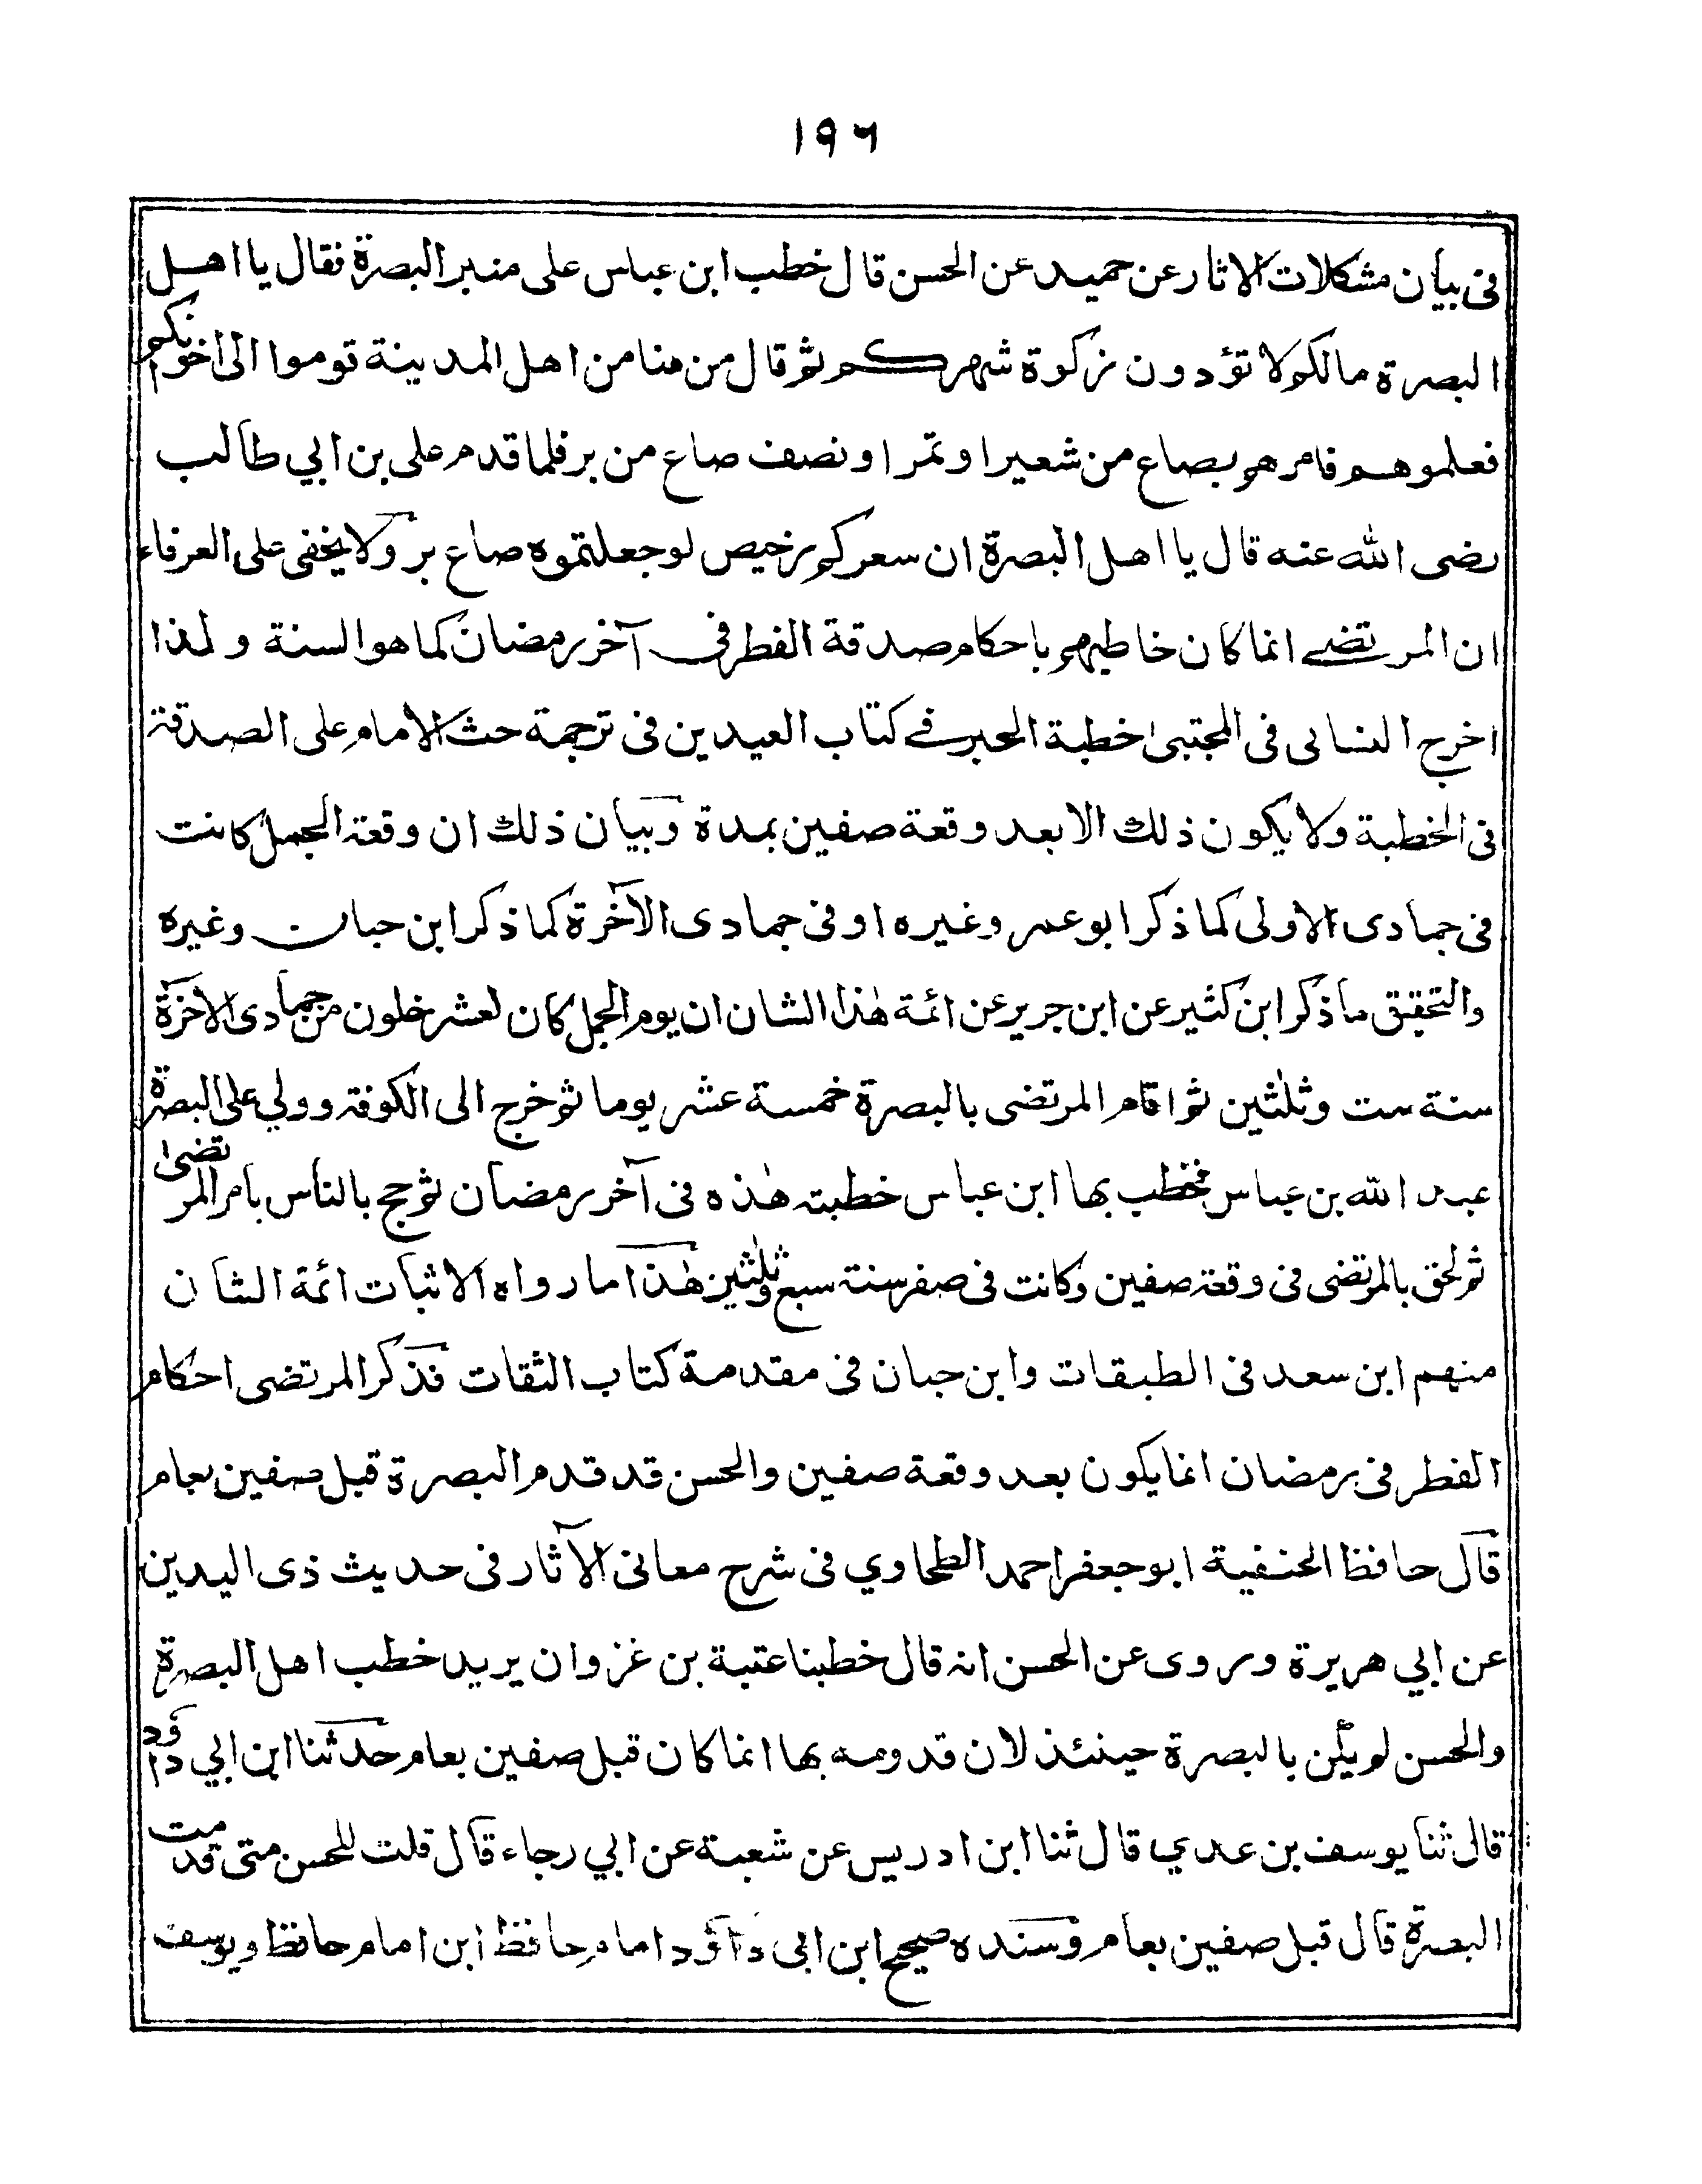 ١٩٦
فى بيان مشكلات الاثار عن حميد عن الحسن قال خطب ابن عباس على منبر البصرة فقال يا اهل
البصرة مالكم لا تؤدون زكوة شهركم ثم قال من هنا من اهل المدينة قوموا الى اخوانكم
فعلموهم فامرهم بصاع من شعير او تمر او نصف صاع من بر فلما قدم على بن ابي طالب
رضى الله عنه قال يا اهل البصرة ان سعركم رخيص لو جعلتموه صاع بر ولا يخفى على العرفاء
ان المرتضى انما كان خاطبهم باحكام صدقة الفطر فى آخر رمضان كما هو السنة ولهذا
اخرج النسائى فى المجتبىٰ خطبة الحبر فى كتاب العيدين فى ترجمة حث الامام على الصدقة
فى الخطبة ولا يكون ذلك الا بعد وقعة صفين بمدة وبيان ذلك ان وقعة الجمل كانت
فى جمادى الاولى كما ذكر ابو عمر وغيره او فى جمادى الآخرة كما ذكر ابن حبان وغيره
والتحقيق ما ذكر ابن كثير عن ابن جرير عن ائمة هٰذا الشان ان يوم الجمل كان لعشر خلون من جمادى الآخرة
سنة ست وثلٰثين ثم اقام المرتضى بالبصرة خمسة عشر يوما ثم خرج الى الكوفة وولي على البصرة
عبد الله بن عباس فخطب بها ابن عباس خطبته هٰذه فى آخر رمضان ثم حج بالناس بامر المرتضىٰ
ثم لحق بالمرتضى فى وقعة صفين وكانت فى صفر سنة سبع وثلٰثين هٰذا ما رواه الاثبات ائمة الشان
منهم ابن سعد فى الطبقات وابن حبان فى مقدمة كتاب الثقات فذكر المرتضى احكام
الفطر فى رمضان انما يكون بعد وقعة صفين والحسن قد قدم البصرة قبل صفين بعام
قال حافظ الحنفية ابو جعفر احمد الطحاوي فى شرح معانى الآثار فى حديث ذى اليدين
عن ابي هريرة وروى عن الحسن انه قال خطبنا عتبة بن غزوان يريد خطب اهل البصرة
والحسن لم يكن بالبصرة حينئذ لان قدومه بها انما كان قبل صفين بعام حدثنا ابن ابي داؤد
قال ثنا يوسف بن عدي قال ثنا ابن ادريس عن شعبة عن ابي رجاء قال قلت للحسن متى قدمت
البصرة قال قبل صفين بعام وسنده صحيح ابن ابى داؤد امام حافظ ابن امام حافظ ويوسف